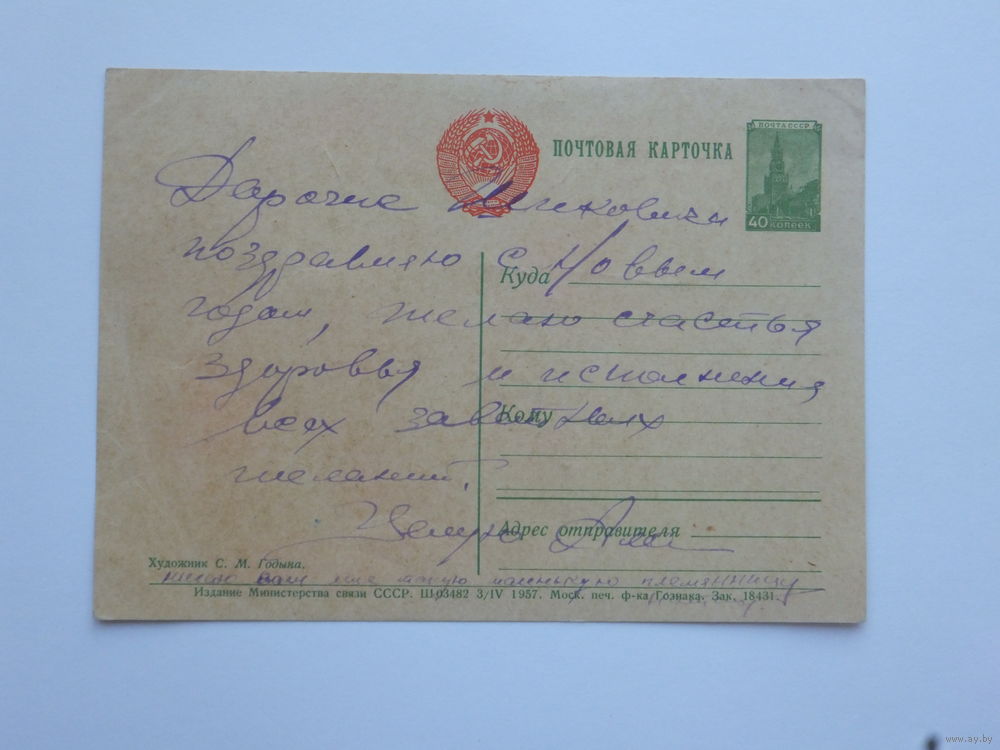 ПОЧТА СССР
ПОЧТОВАЯ КАРТОЧКА
40 КОПЕЕК
поздравляю с Новым
Куда
годом, желаю счастья
здоровья и исполнения
Кому
всех заветных
желаний.
Целую
Адрес отправителя
Художник С. М. Годына.
вам еще такую племянницу
Издание Министерства связи СССР. Ш03482 3/IV 1957. Моск. печ. ф-ка Гознака. Зак. 18431.
www.ay.by